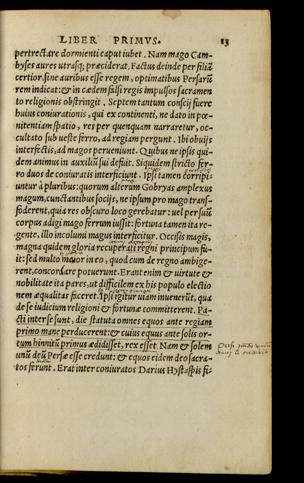 LIBER PRIMVS. 13
pertrectare dormienti caput iubet. Nam mago Cam-
byses aures utrasq; præciderat. Factus deinde per filiã
certior, sine auribus esse regem, optimatibus Persarũ
rem indicat: & in cædem falsi regis impulsos sacramen
to religionis obstringit. Septem tantum conscij fuere
huius coniurationis, qui ex continenti, ne dato in pœ-
nitentiam spatio, res per quenquam narraretur, oc-
cultato sub ueste ferro, ad regiam pergunt. Ibi obuijs
interfectis, ad magos perueniunt. Quibus ne ipsis qui-
dem animus in auxiliũ sui defuit. Siquidem stricto fer-
ro duos de coniuratis interficiunt. Ipsi tamen corripi-
untur à pluribus: quorum alterum Gobryas amplexus
magum, cunctantibus socijs, ne ipsum pro mago trans-
foderent, quia res obscuro loco gerebatur: uel per suũ
corpus adigi mago ferrum iussit: fortuna tamen ita re-
gente, illo incolumi magus interficitur. Occisis magis,
magna quidem gloria recuperati regni principum fu-
it: sed multo maior in eo, quod cum de regno ambige-
rent, concordare potuerunt. Erant enim & uirtute &
nobilitate ita pares, ut difficilem ex his populo electio
nem æqualitas faceret. Ipsi igitur uiam inuenerũt, qua
de se iudicium religioni & fortunæ committerent. Pa-
cti inter se sunt, die statuta omnes equos ante regiam
primo mane perducerent: & cuius equus ante solis or-
tum hinnitũ primus ædidisset, rex esset. Nam & solem
unũ deũ Persæ esse credunt: & equos eidem deo sacra-
tos ferunt. Erat inter coniuratos Darius Hystaspis fi-